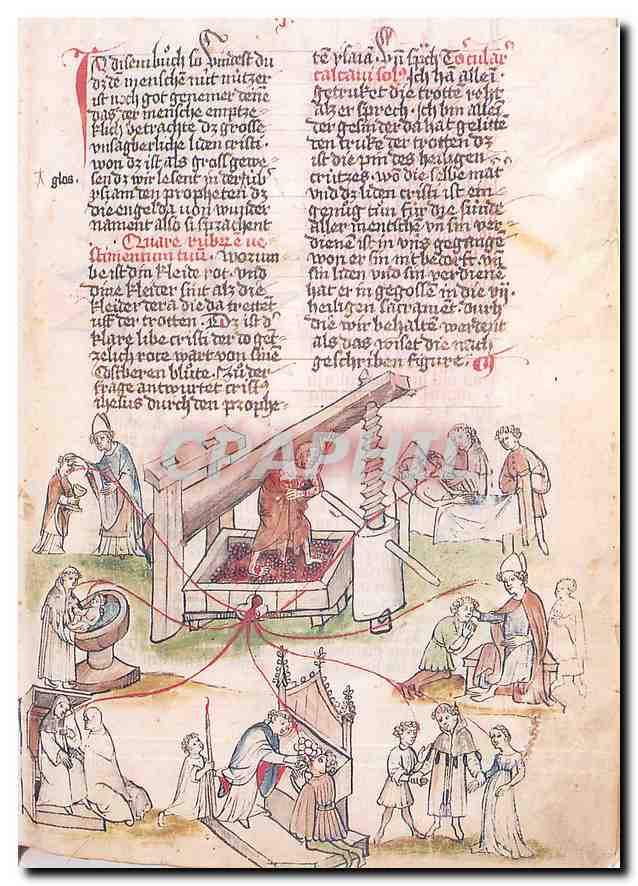 disem buͦch so vindest du
dz dē menschē nüt nützer
ist noch got genemer dēne
das der mensche emptze
klich betrachte dz grosse
vnsagberliche liden cristi
won dz ist als gross gewe
sen dz wir lesent in der
den propheten dz
die engel da
nament also si sprachent
Quare
vestimentum tuū. worum
be ist din kleide rot. vnd
dine kleider sint als die
kleider dera die da trettēt
vff der trotten. Dz ist dˢ
klare libe cristi der do getz
lich rote wart von sinē
costberen bluͦte. zuͦ der
frage antwurtet cristˀ
ihesus durch den prophe-
glos.
tē ysaiā. Vn̄ spͥch Torcular
calcaui solˀ. Ich hā allein
getruket die trotte reht
alz er sprech. Ich bin allein
der gesin der da hat gelitte
den truk der trotten dz
ist die pin des heiligen
crützes. wō die selbe mat
vnd dz liden cristi ist ein
genuͦg tuͦn für die sünde
aller mentsche vn̄ sin ver-
dienē ist in vns gegangē
won er sin nit bedorft vn̄
sin liden vnd sin verdienē
hat er in gegossē in die vij.
heiligen sacramēt. durh
die wir behaltē werdent
als das wiset die nach
geschriben figure.
CPAPHIL